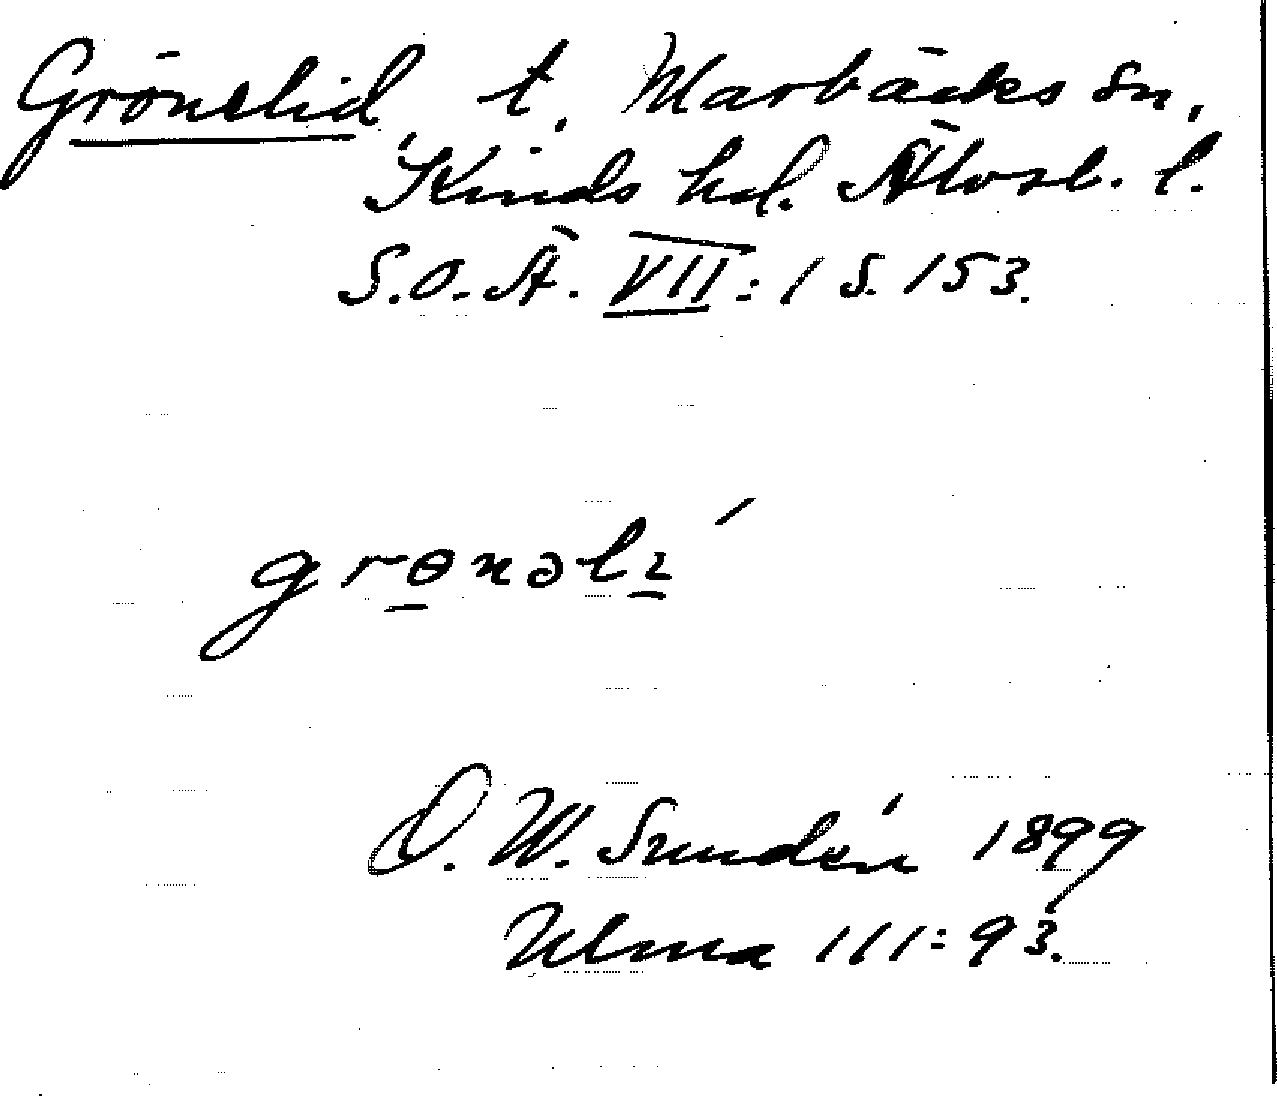 Grönelid, t. Marbäcks sn,
Kinds hd. Älvsb. l.
S.O.Ä. VII:1 S. 153.
grɵnəlɩ ́
O. W. Sundén 1899
Ulma 111:93.